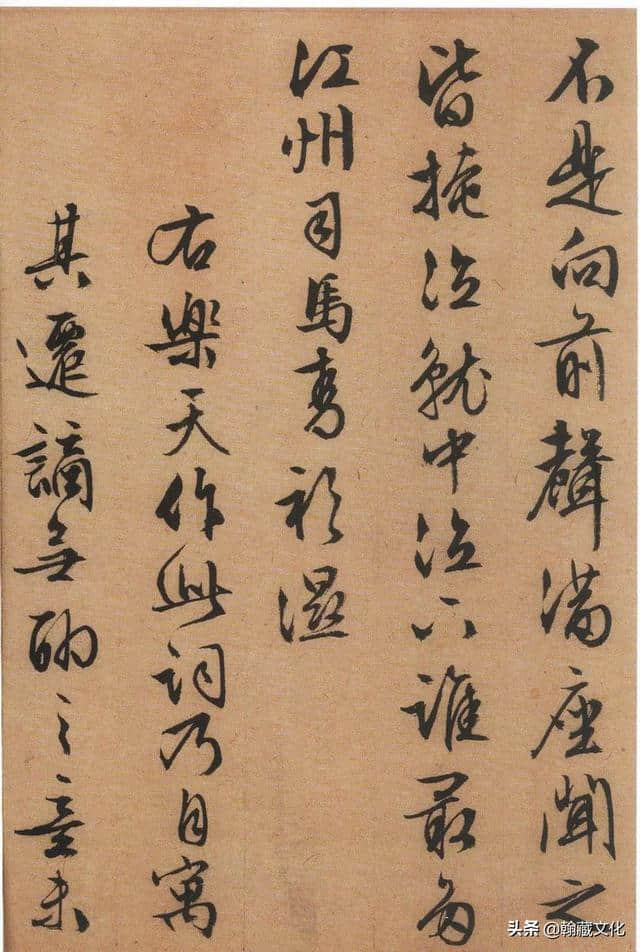 不是向前聲滿座聞之
皆掩泣就中泣下誰最多
江州司馬青衫濕
右樂天作此詞乃自寓
其遷謫無聊之意未
头条 @翰藏文化